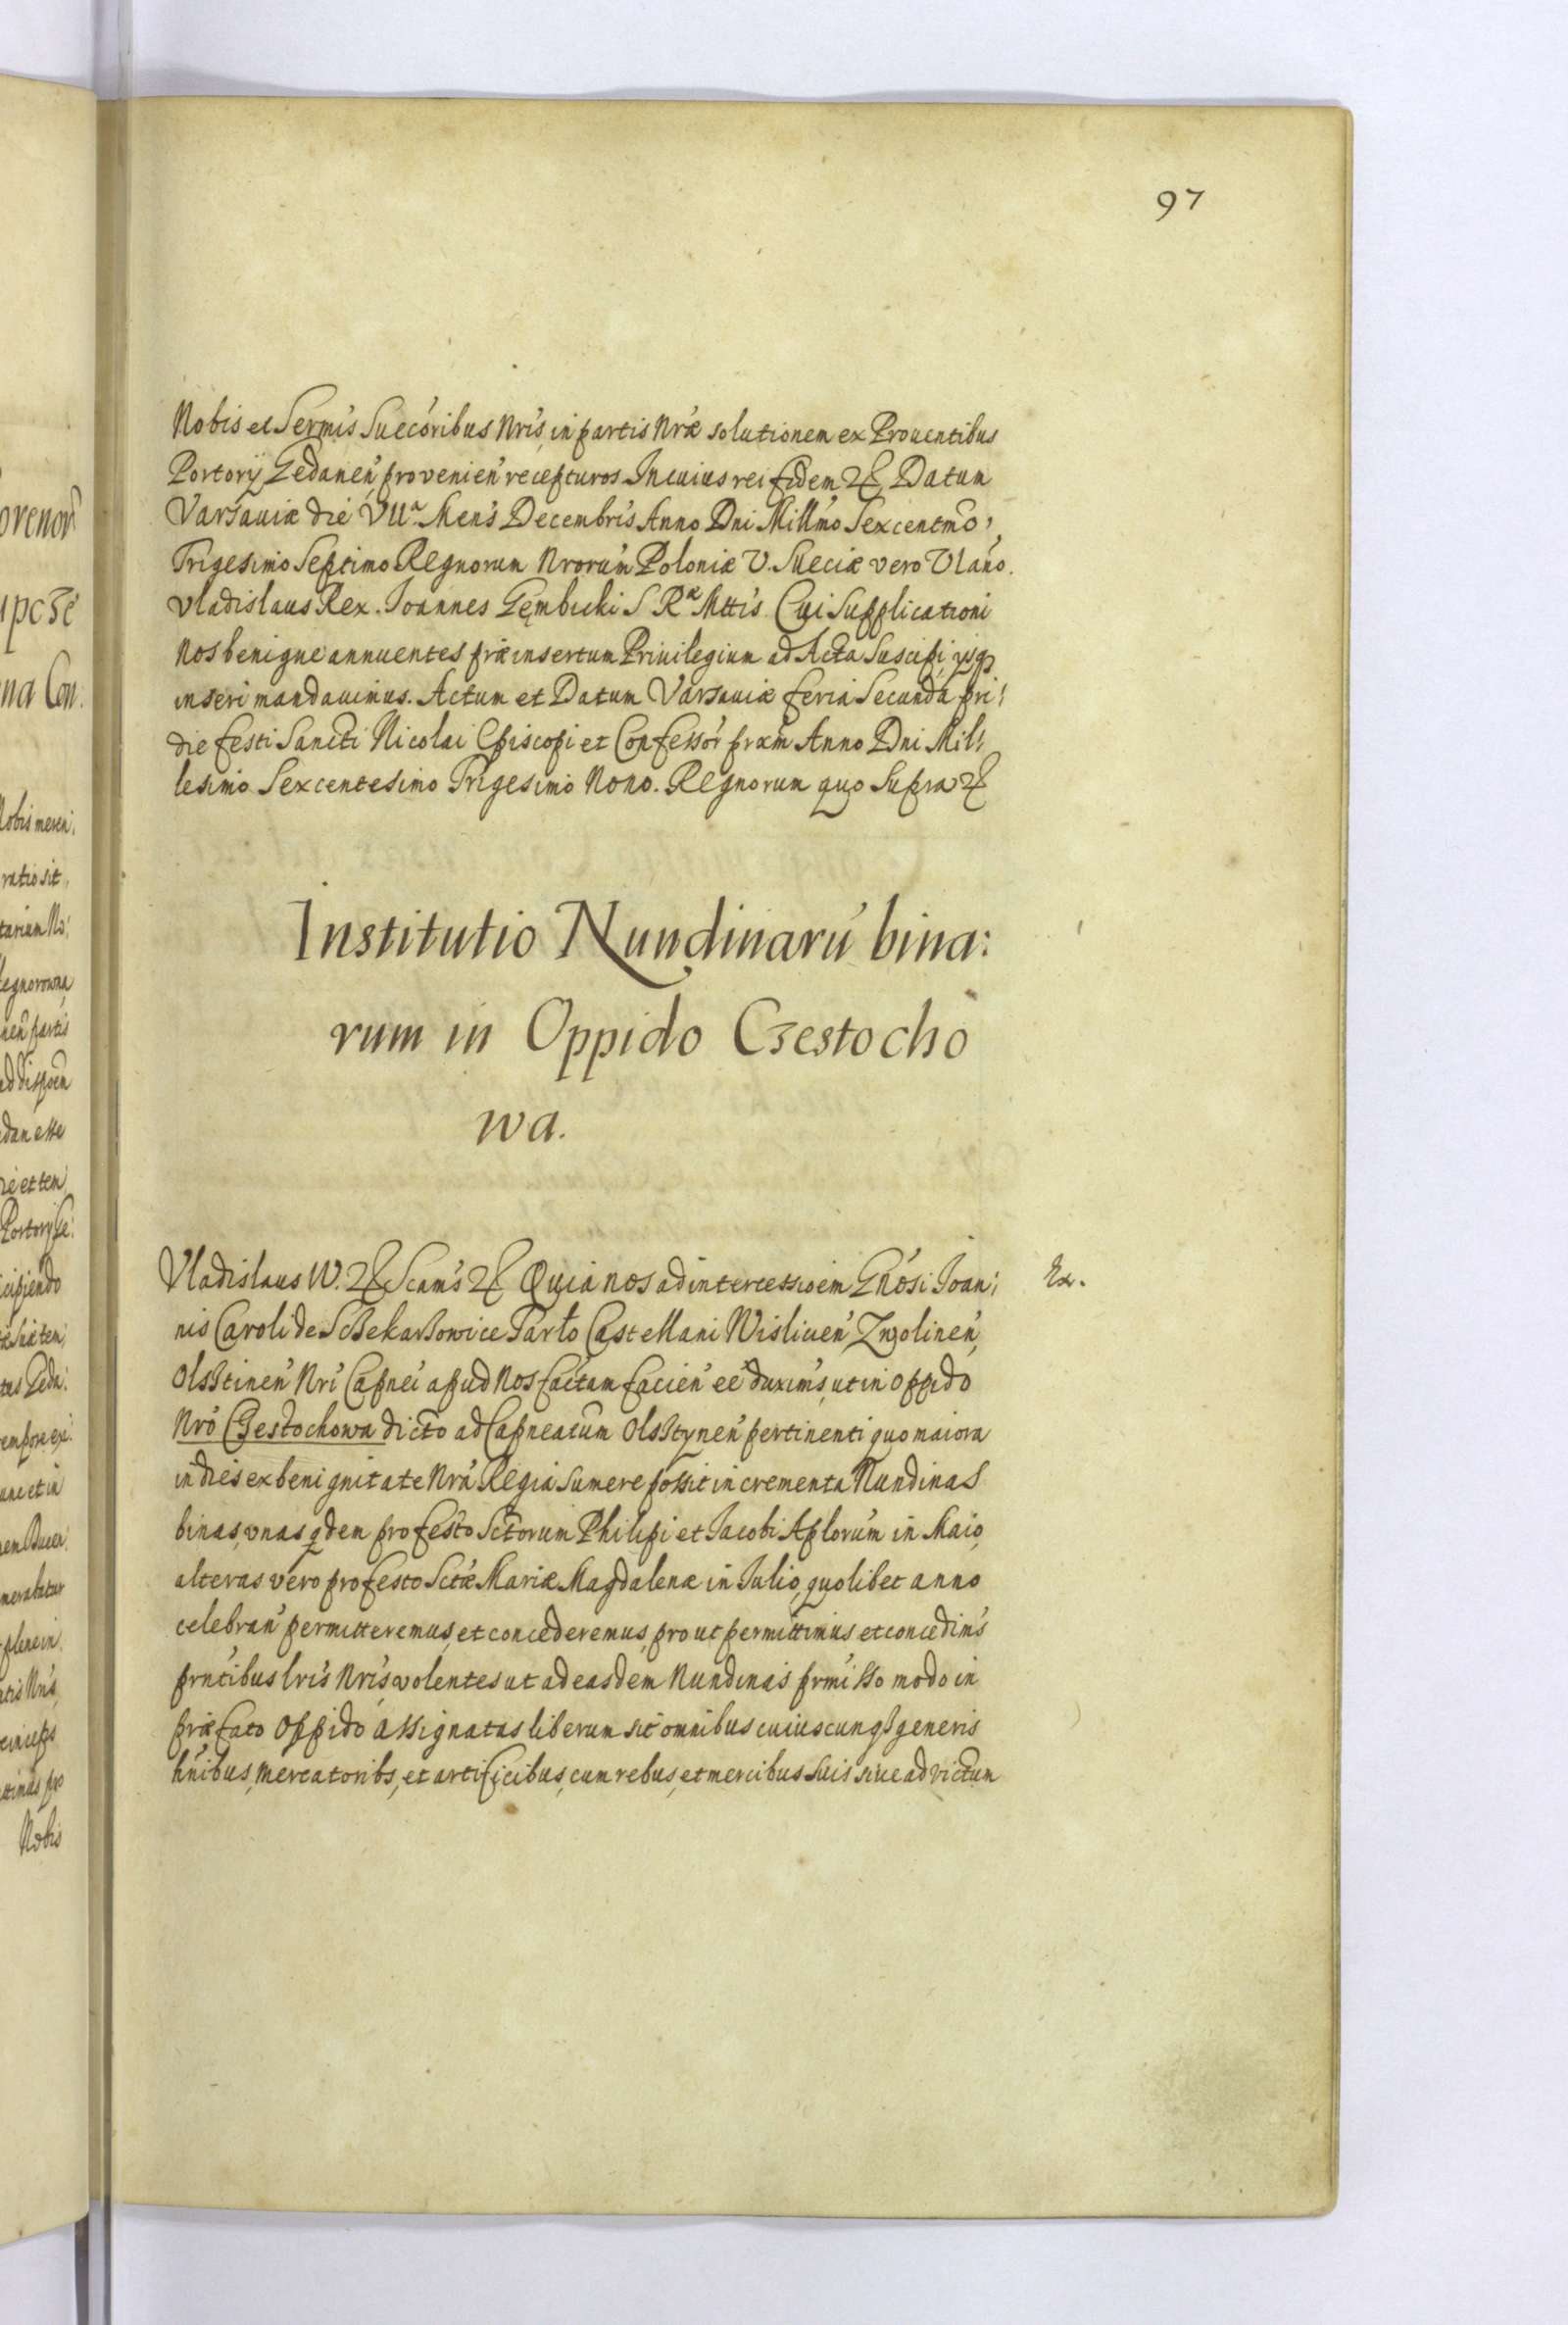 97
Nobis et Sermis Suecoribus Nris, in partis Nræ solutionem ex Prouentibus
Portorÿ Gedanen, provenien recepturos. In cuius rei fidem &c. Datum
Varsauiæ die VIIa. Mens Decembris Anno Dni Millmo Sexcentmo,
Trigesimo Septimo Regnorum Nrorum Poloniæ V. Sueciæ vero VI año.
Vladislaus Rex. Joannes Gęmbicki S Ræ Mttis. Cui Supplicationi
Nos benigne annuentes præinsertum Priuilegium ad Acta Suscipi, ysq
inseri mandauimus. Actum et Datum Varsauiæ feria Secunda pri:
die festi Sancti Nicolai Episcopi et Confessor prxm Anno Dni Mil:
lesimo Sexcentesimo Trigesimo Nono. Regnorum quo Supra &c
Institutio Nundinarú bina:
rum in Oppido Czestocho
wa.
Vladislaus IV. &c Scams &c Quia nos ad intercessioem Gnosi Joan:
Ex.
nis Caroli de Sczekarzowice Tarło Castellani Wislicen, Zwolinen,
Olsztinen Nri Capnei apud Nos factam facien eé duxims, ut in oppido
Nro Czestochowa dicto ad Capneatum Olsztynen pertinenti quo maiora
in dies ex benignitate Nra Regia sumere possit incrementa Nundinas
binas, vnas qdem pro festo Sctorum Philipi et Jacobi Aplorum in Maio,
alteras vero pro festo Sctæ Mariæ Magdalenæ in Julio, quolibet anno
celebran permitteremus, et concederemus, prout permittimus et concedims
prntibus lris Nris, volentes ut ad easdem Nundinas prmisso modo in
præfato oppido assignatas liberum sit omnibus cuiuscunq generis
hnibus, mercatoribs, et artificibus, cum rebus, et mercibus suis siue ad victum